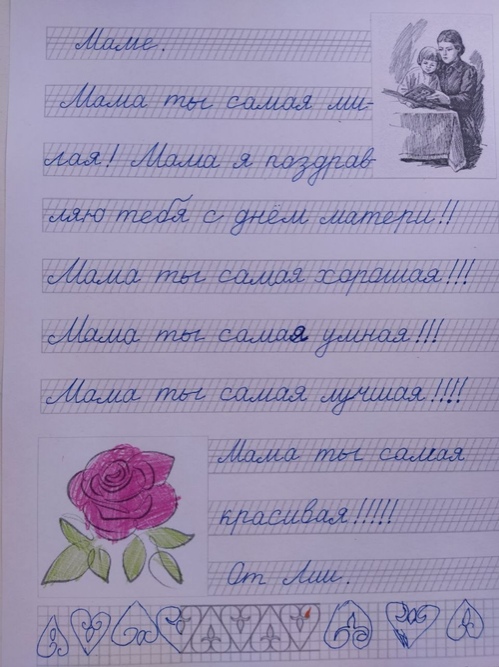 Маме.
Мама ты самая ми-
лая! Мама я поздрав-
ляю тебя с днём матери!!
Мама ты самая хорошая!!!
Мама ты самая умная!!!
Мама ты самая лучшая!!!!
Мама ты самая
красивая!!!!!
От Лии.